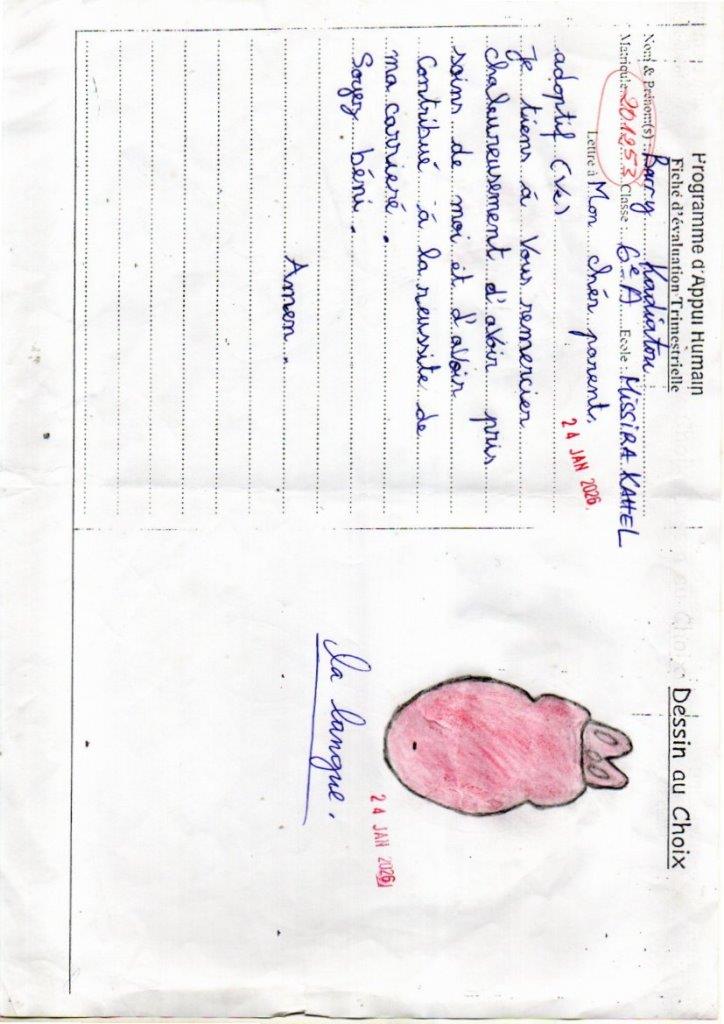 Programme d'Appui Humain
Fiche d'évaluation Trimestrielle
Nom & Prénom(s) : Barry Kadiatou
Matricule 201253 Classe : 6e A Ecole : MISSIRA KAHEL
Lettre à Mon chèr parent,
24 JAN 2026
adoptif (ve)
Je tiens à Vous remercier
chaleureusement d'avoir pris
soins de moi et d'avoir
Contribué à la reussite de
ma carrieré.
Soyez béni.
Amen.
Dessin au Choix
la langue.
24 JAN 2026